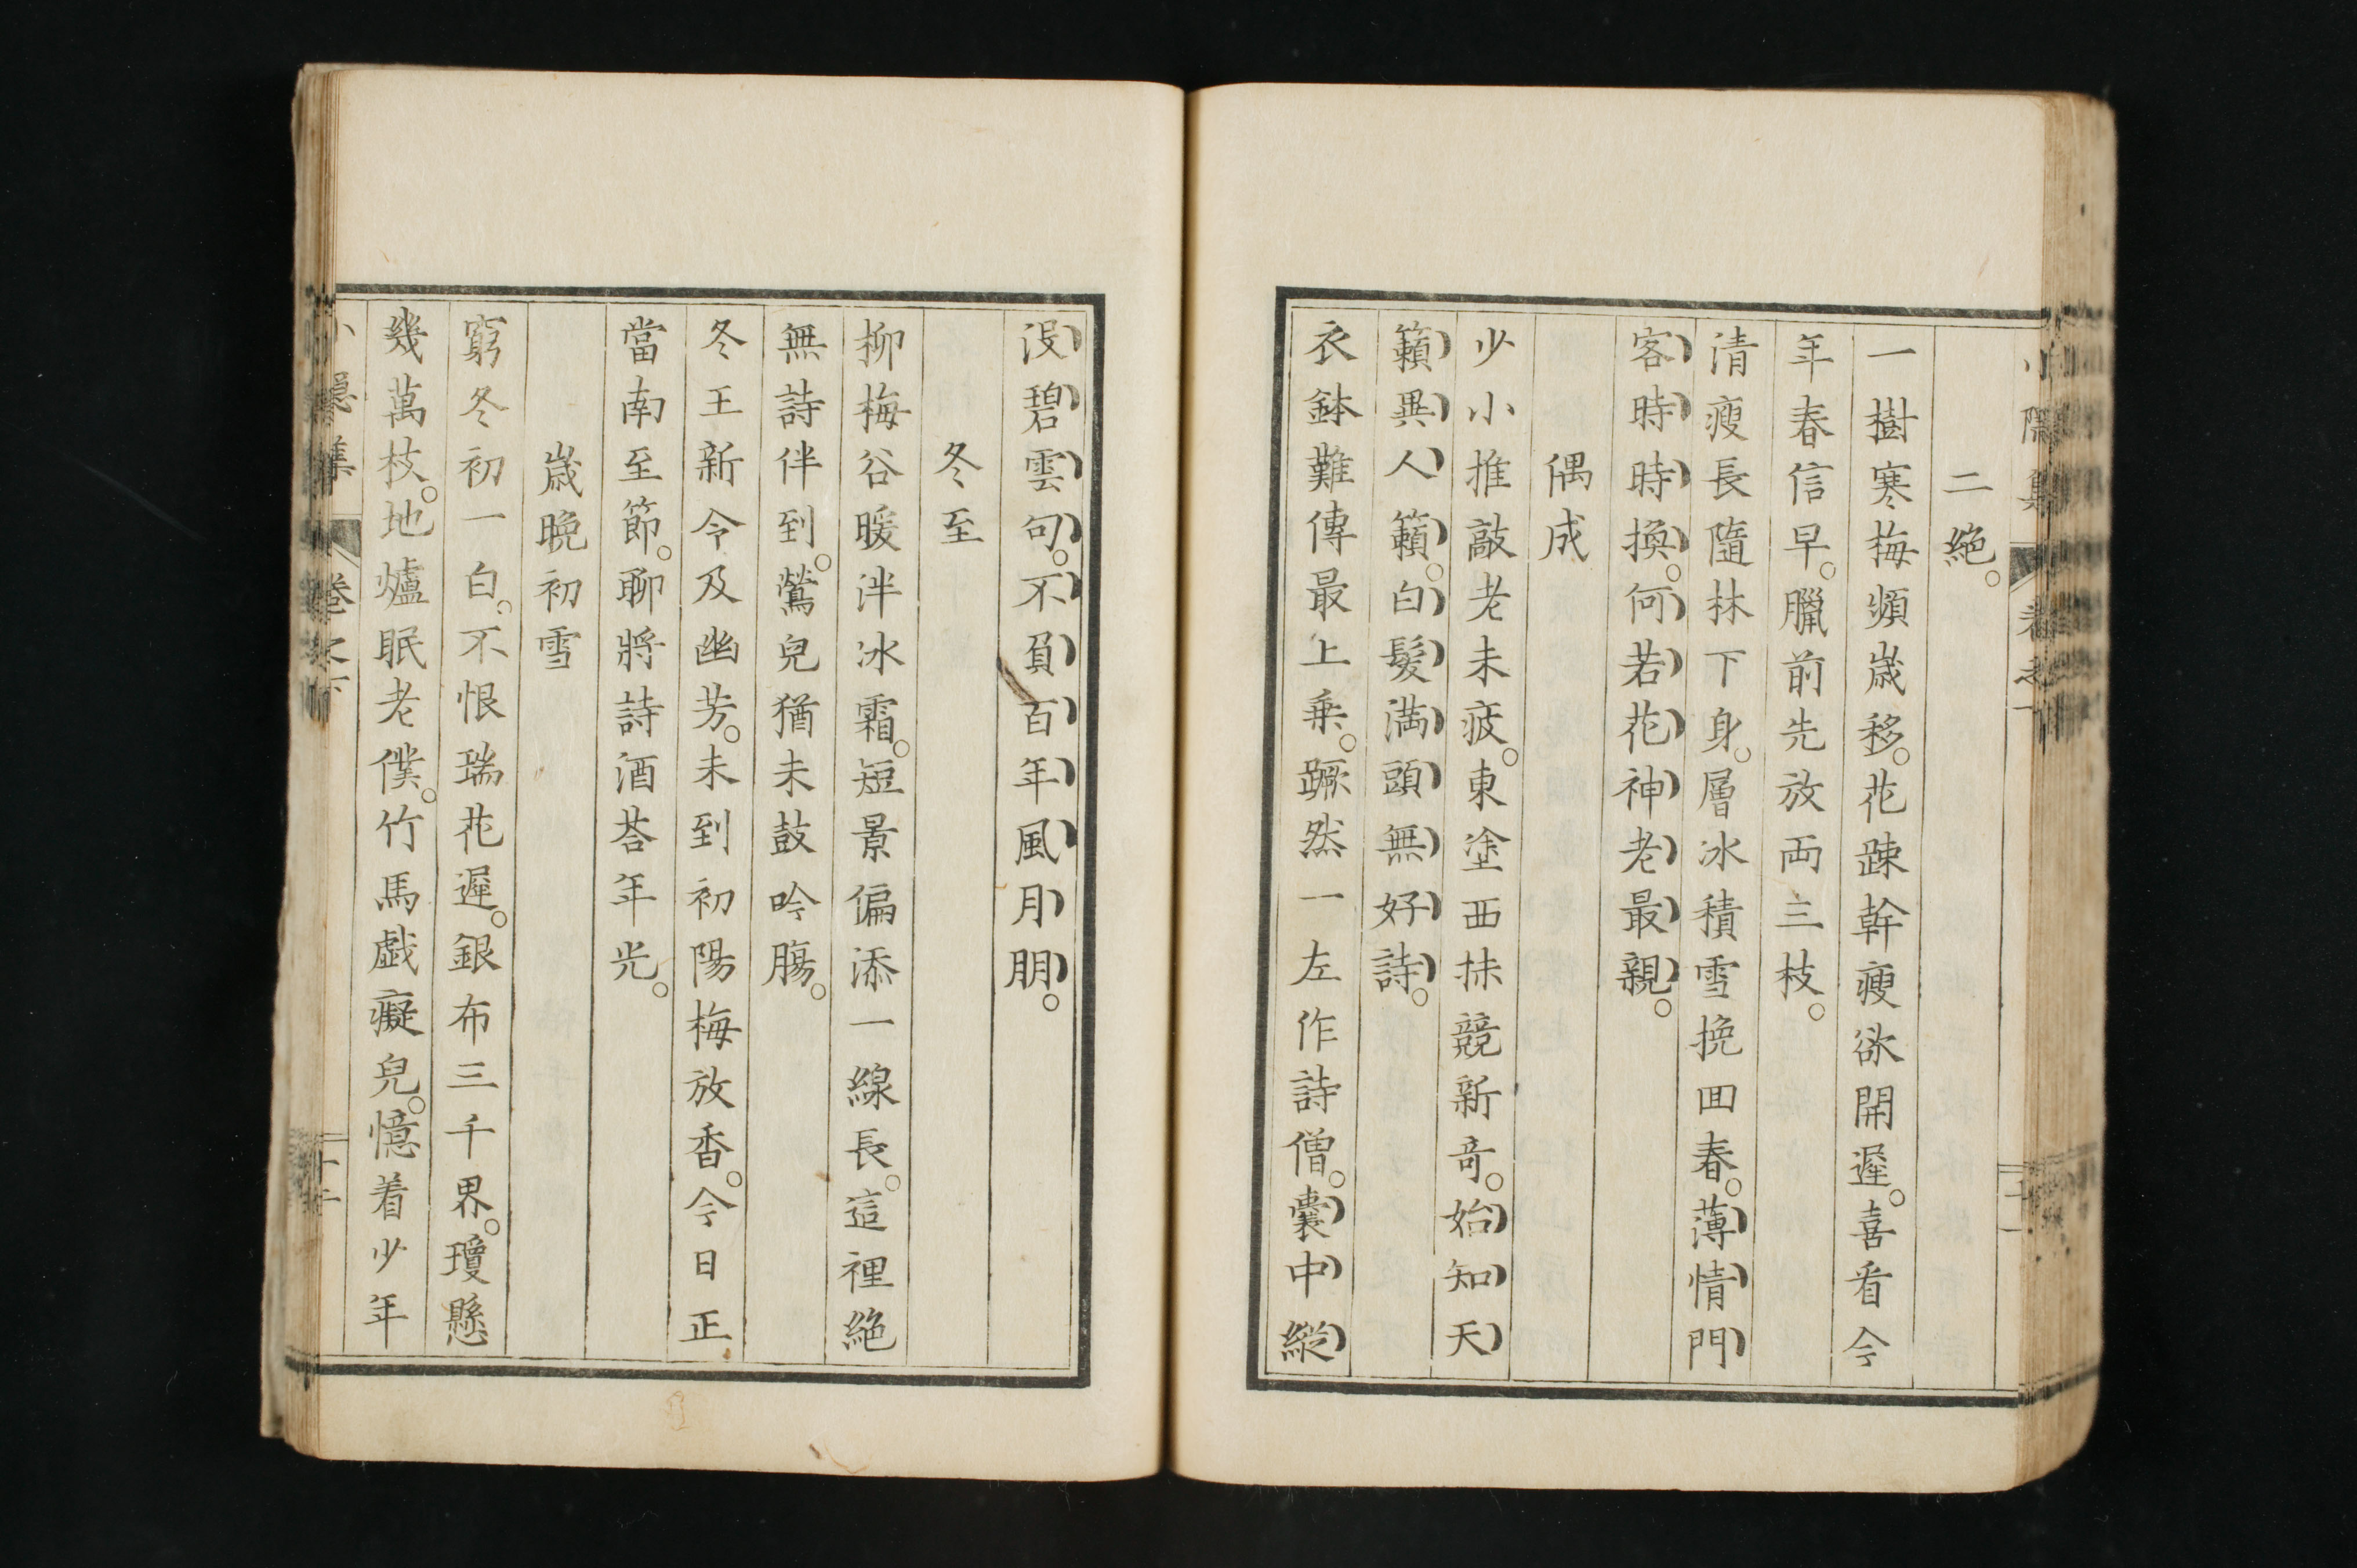 二絕。
一樹寒梅頻歲移。花踈幹瘦欲開遲。喜看今
年春信早。臘前先放両三枝。
清瘦長隨林下身。層冰積雪挽回春。薄情門
客時時換。何若花神老最親。
偶成
少小推敲老未疲。東塗西抹競新奇。始知天
籟異人籟。白髮満頭無好詩。
衣鉢難傳最上乗。蹶然一左作詩僧。囊中縱
沒碧雲句。不負百年風月朋。
冬至
柳梅谷暖泮冰霜。短景偏添一線長。這裡絕
無詩伴到。鶯兒猶未鼓吟腸。
冬王新令及幽芳。未到初陽梅放香。今日正
當南至節。聊將詩酒荅年光。
歲晚初雪
窮冬初一白。不恨瑞花遲。銀布三千界。瓊懸
幾萬枝。地爐眠老僕。竹馬戯癡兒。憶着少年
小隱集 卷之下 十二